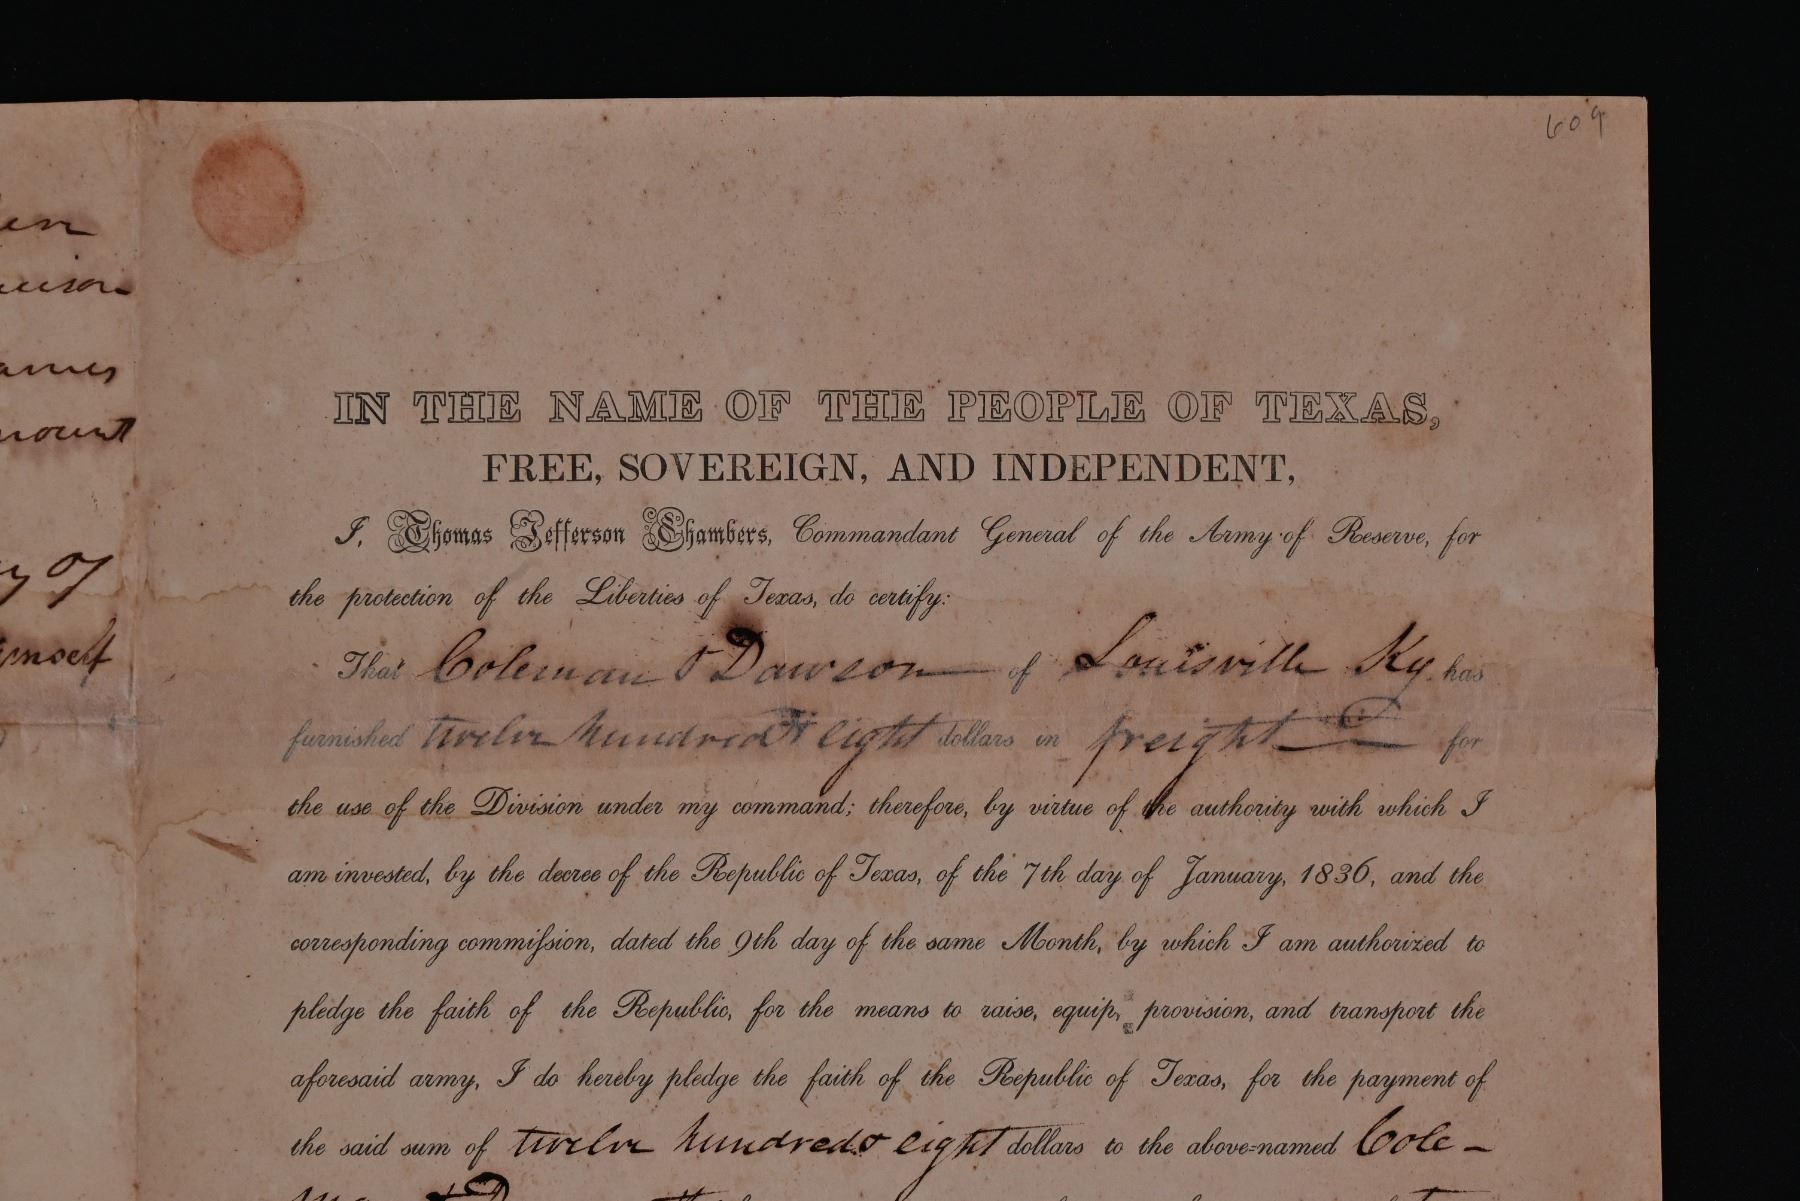 609
IN THE NAME OF THE PEOPLE OF TEXAS,
FREE, SOVEREIGN, AND INDEPENDENT,
I, Thomas Jefferson Chambers, Commandant General of the Army of Reserve, for
the protection of the Liberties of Texas, do certify:
That Coleman & Dawson of Louisville Ky. has
furnished twelve hundred & eight dollars in freight for
the use of the Division under my command; therefore, by virtue of the authority with which I
am invested, by the decree of the Republic of Texas, of the 7th day of January, 1836, and the
corresponding commiſsion, dated the 9th day of the same Month, by which I am authorized to
pledge the faith of the Republic, for the means to raise, equip, provision, and transport the
aforesaid army, I do hereby pledge the faith of the Republic of Texas, for the payment of
the said sum of twelve hundred & eight dollars to the above-named Cole-